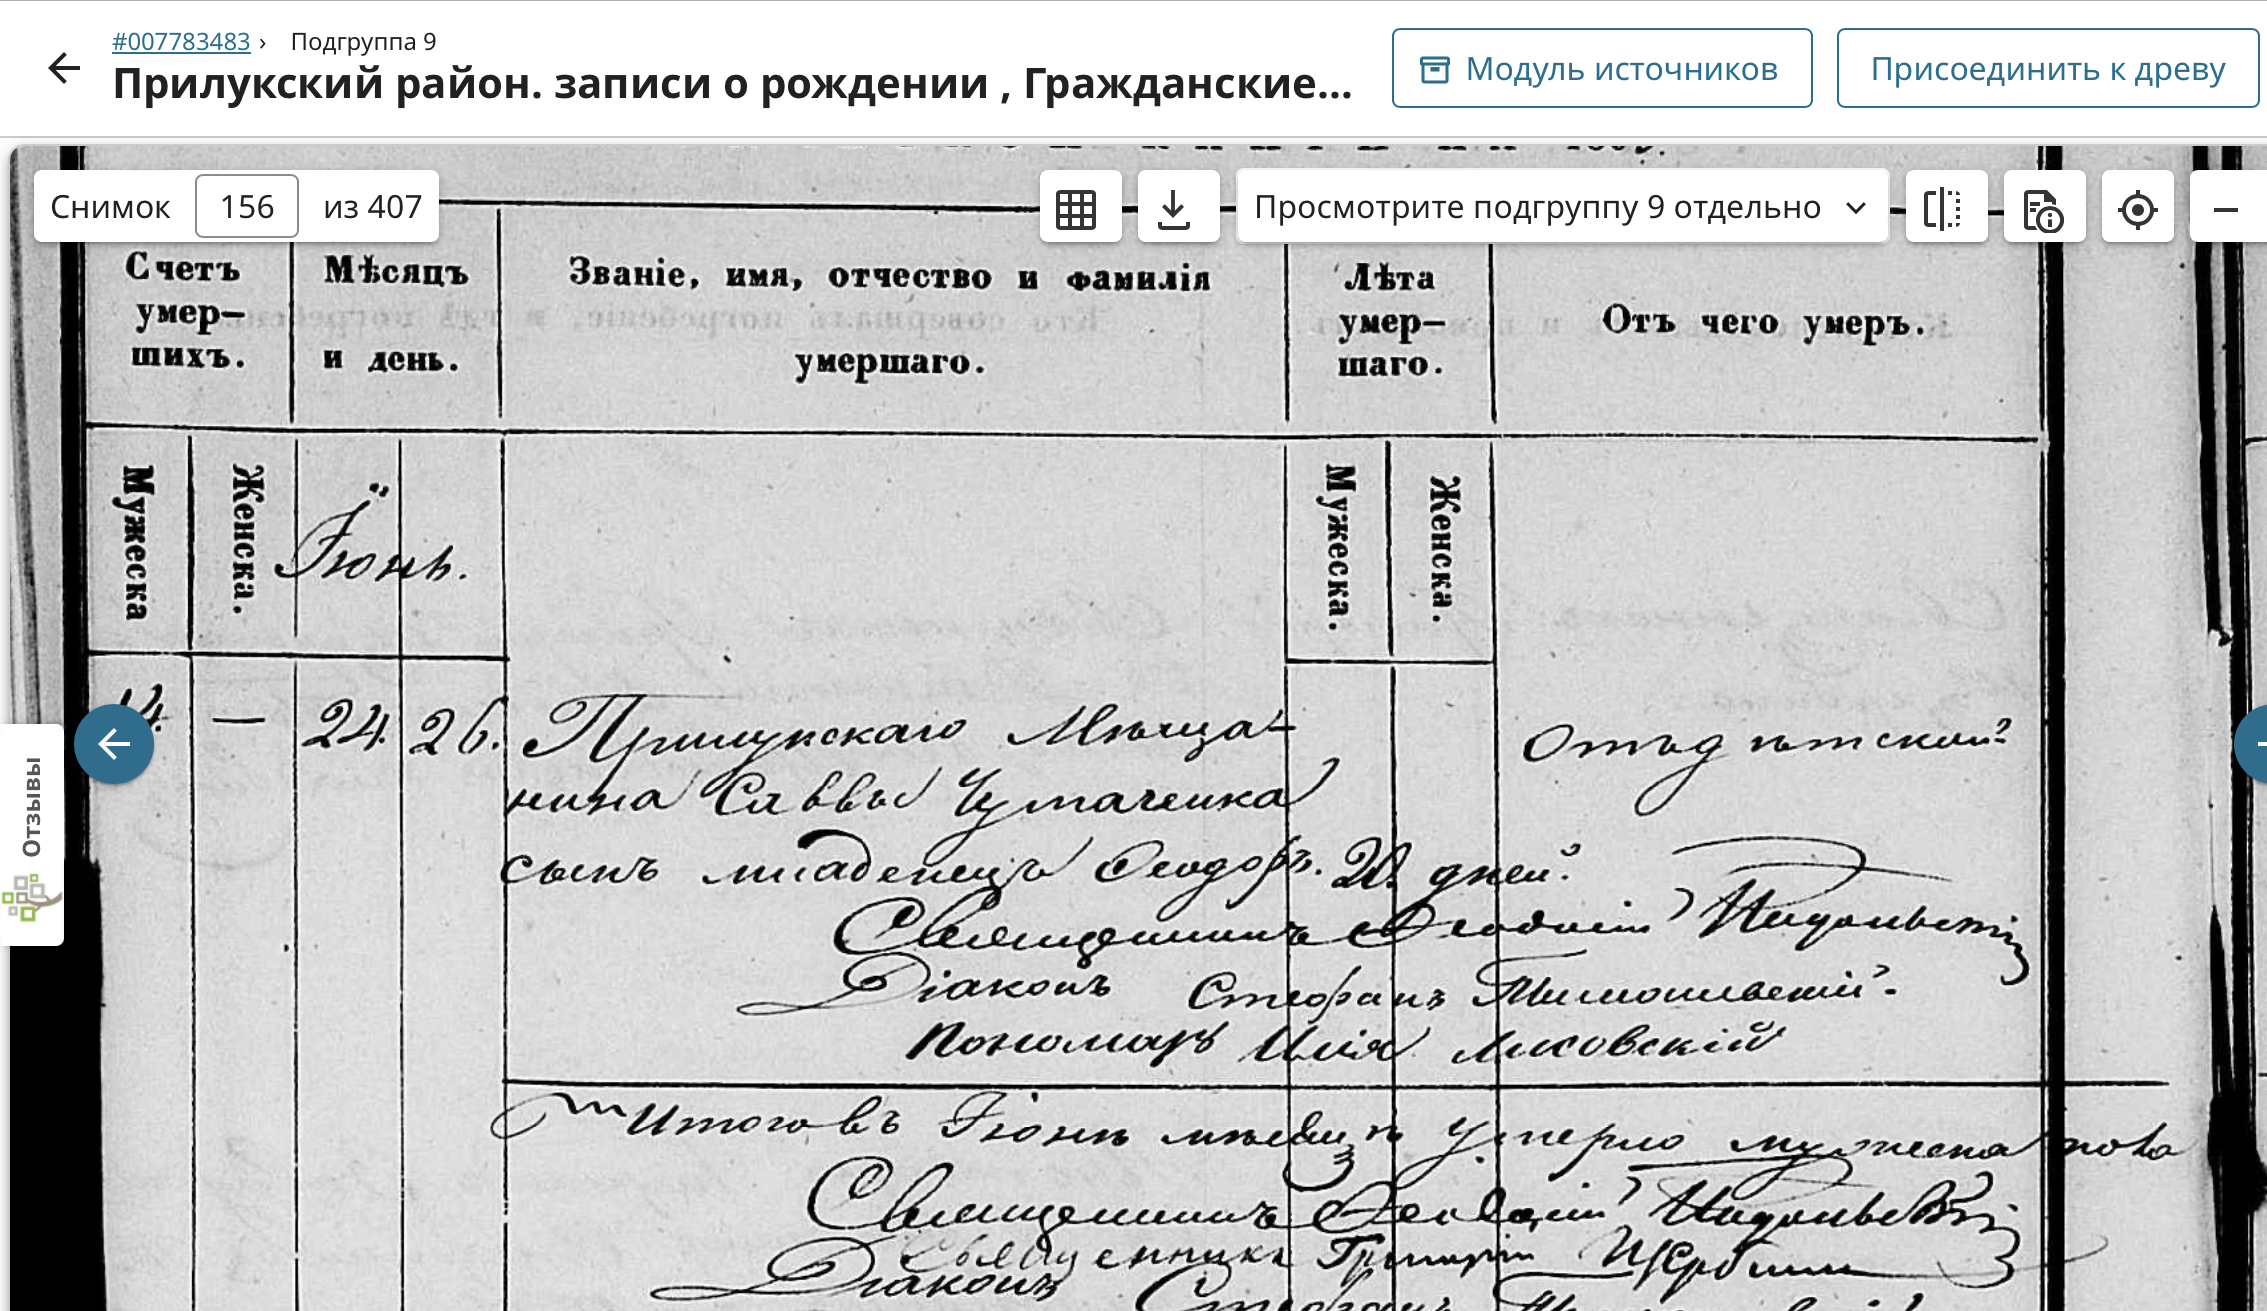 #007783483 › Подгруппа 9
Прилукский район. записи о рождении , Гражданские...
Модуль источников
Присоединить к древу
Снимок 156 из 407
Просмотрите подгруппу 9 отдельно
Счетъ умер–шихъ.
Мѣсяцъ и день.
Званіе, имя, отчество и фамилія умершаго.
Лѣта умер–шаго.
Отъ чего умеръ.
Мужеска
Женска.
Іюнь.
Мужеска.
Женска.
14. — 24. 26. Прилукскаго Мѣща-
нина Саввы Чумаченка
сынъ младенецъ Ѳеодоръ. 20. дней.
Отъ
Священникъ Ѳеодосій
Діаконъ Стефанъ
Пономарь Илія Лисовскій
Итого въ Іюнѣ мѣсяцѣ умерло мужеска пола
Священникъ Ѳеодосій
Священникъ Григорій Щербина
Діаконъ Стефанъ
Отзывы